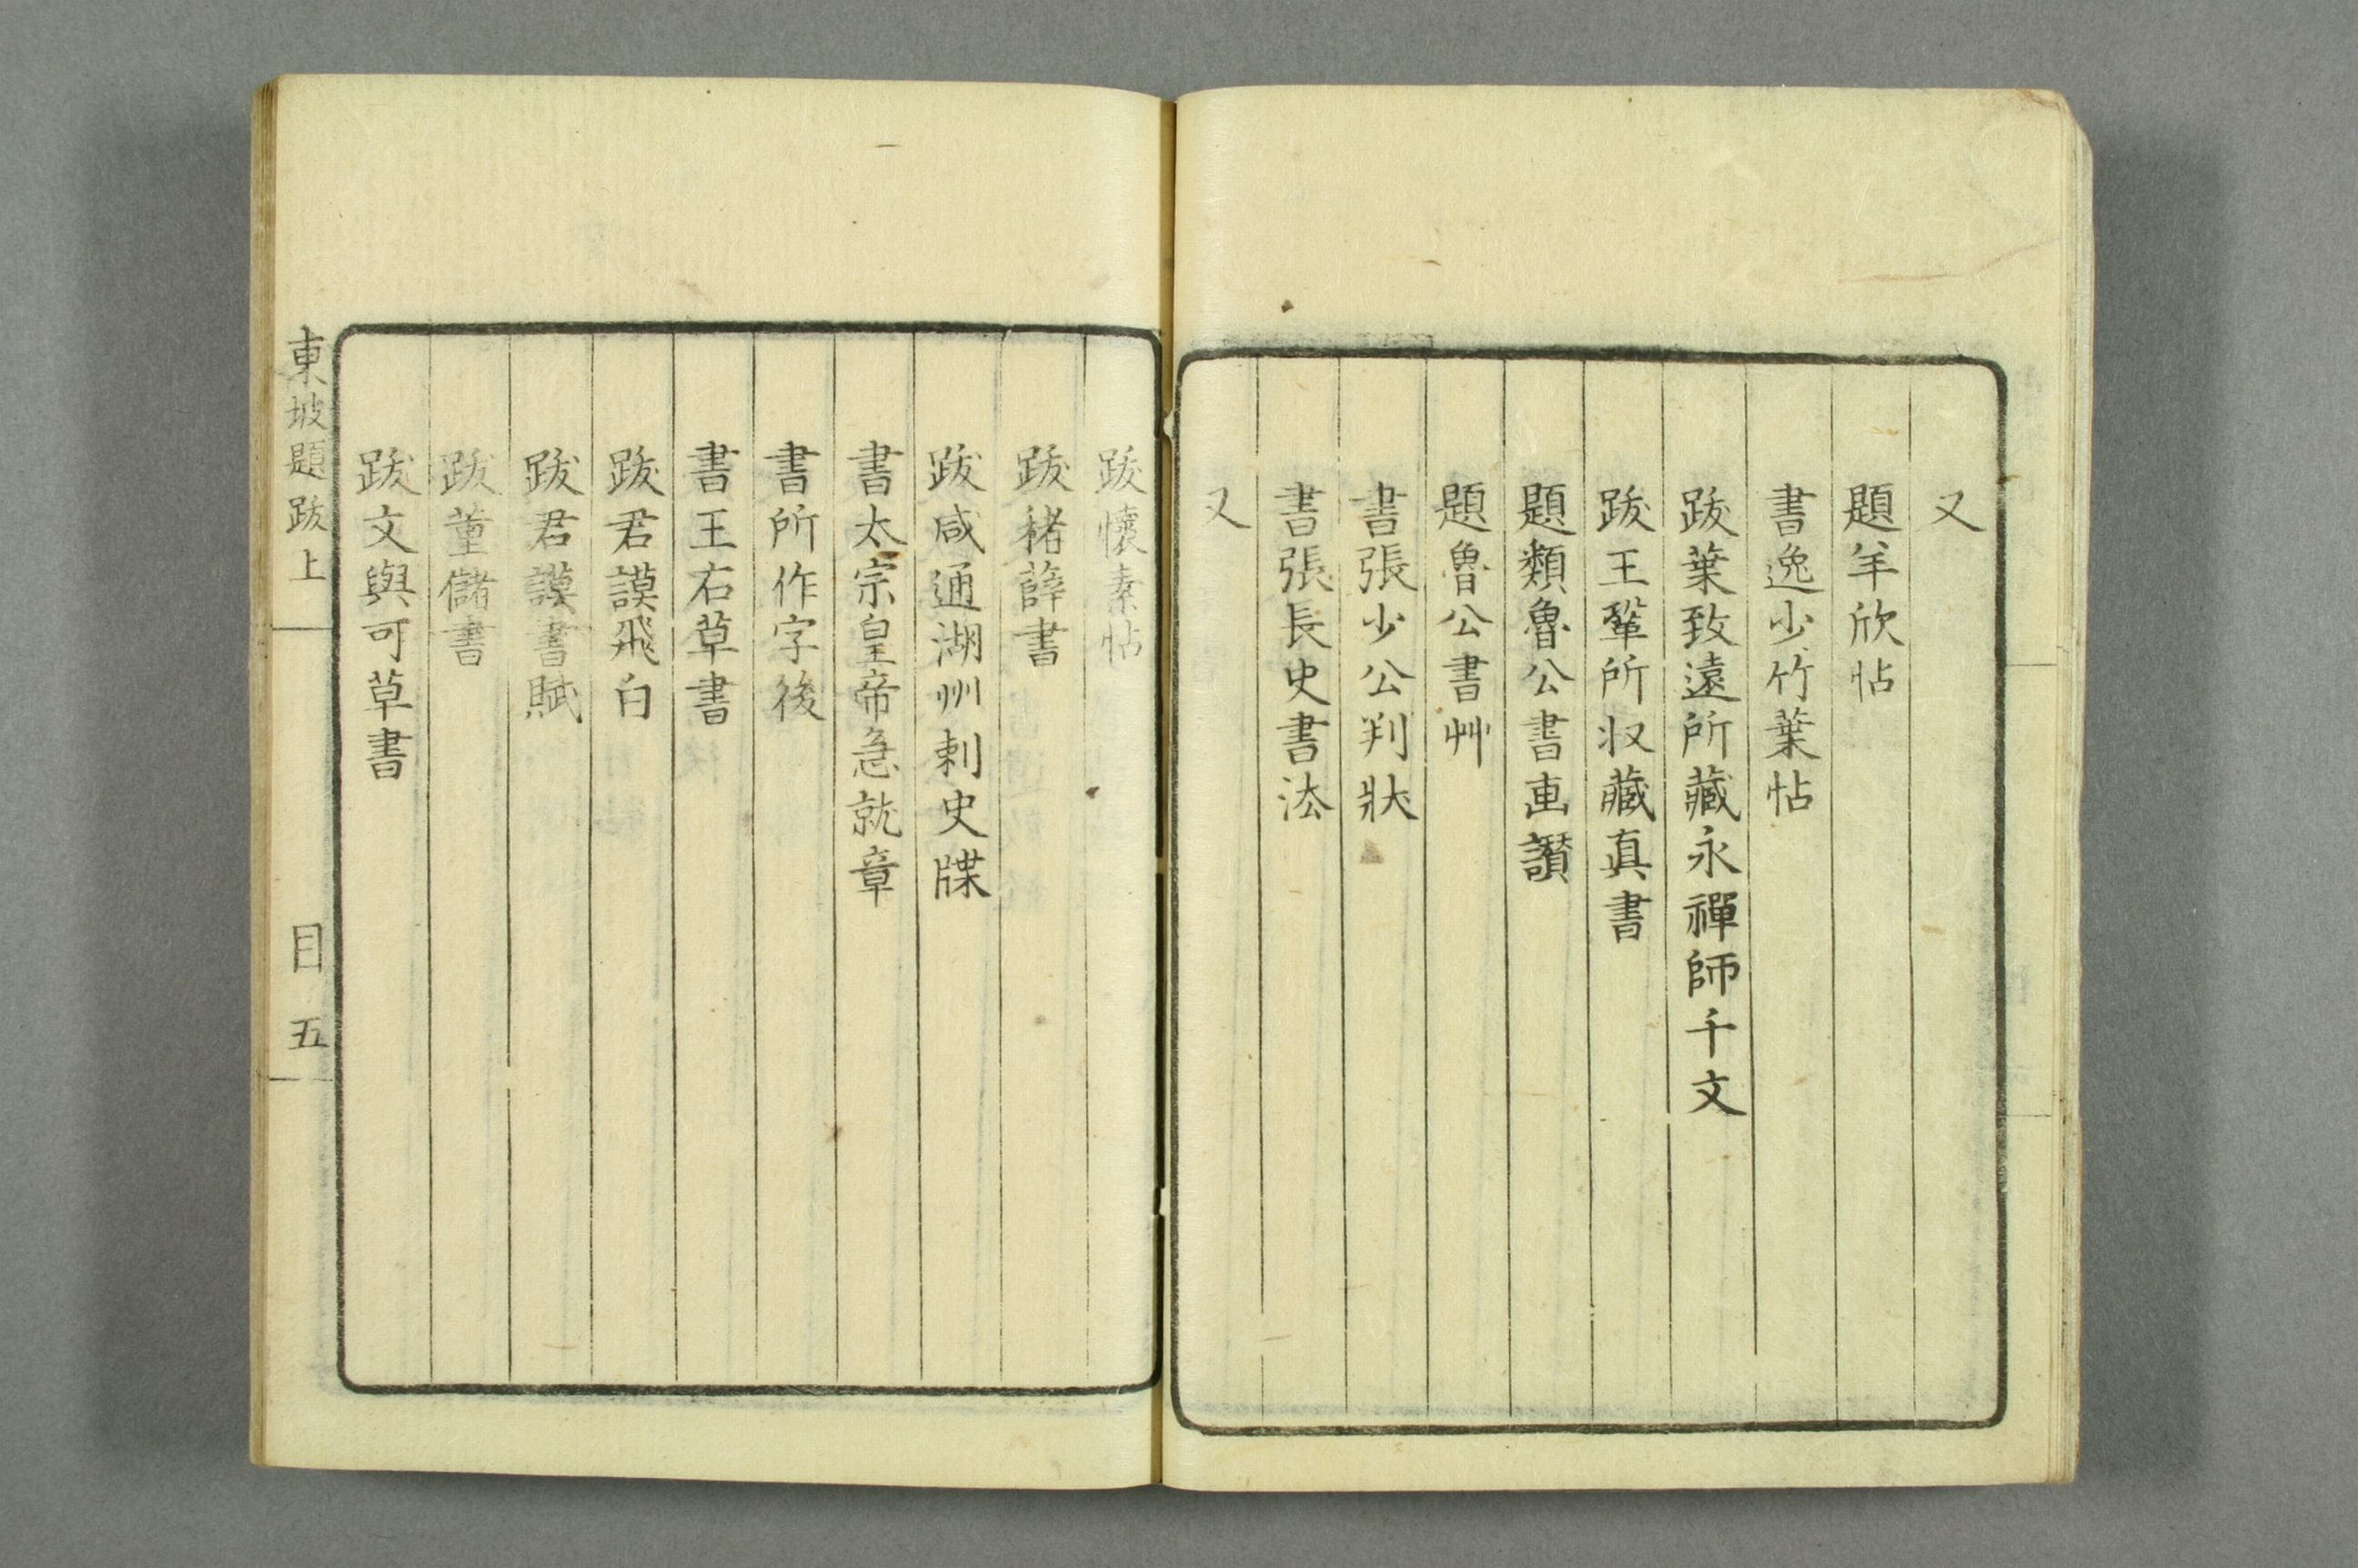 又
題羊欣帖
書逸少竹葉帖
跋葉致遠所藏永禪師千文
跋王鞏所収藏真書
題類魯公書画讃
題魯公書艸
書張少公判狀
書張長史書法
又
跋懷素帖
跋褚薛書
跋咸通湖州刺史牒
書太宗皇帝急就章
書所作字後
書王右草書
跋君謨飛白
跋君謨書賦
跋董儲書
跋文與可草書
東坡題跋上
目五